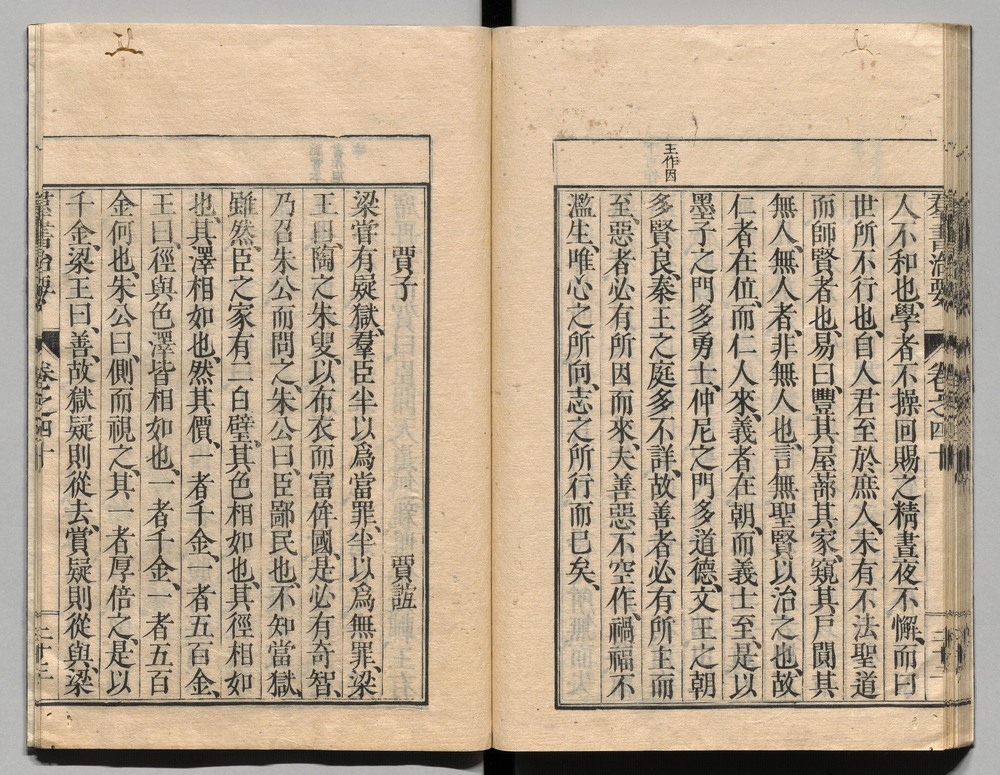 羣書治要　卷之四十
王作因
人不和也、學者不操回賜之精、晝夜不懈、而曰
世所不行也、自人君至於庶人、未有不法聖道
而師賢者也、易曰、豐其屋、蔀其家、窺其戶、闃其
無人、無人者、非無人也、言無聖賢以治之也、故
仁者在位、而仁人來、義者在朝、而義士至、是以
墨子之門多勇士、仲尼之門多道德、文王之朝
多賢良、秦王之庭多不詳、故善者必有所主而
至、惡者必有所因而來、夫善惡不空作、禍福不
濫生、唯心之所向、志之所行而已矣、
賈子　賈誼
梁嘗有疑獄、羣臣半以爲當罪、半以爲無罪、梁
王曰、陶之朱叟、以布衣而富侔國、是必有奇智、
乃召朱公而問之、朱公曰、臣鄙民也、不知當獄、
雖然、臣之家有二白璧、其色相如也、其徑相如
也、其澤相如也、然其價、一者千金、一者五百金、
王曰、徑與色澤皆相如也、一者千金、一者五百
金何也、朱公曰、側而視之、其一者厚倍之、是以
千金、梁王曰、善、故獄疑則從去、賞疑則從與、梁
羣書治要　卷之四十　二十三